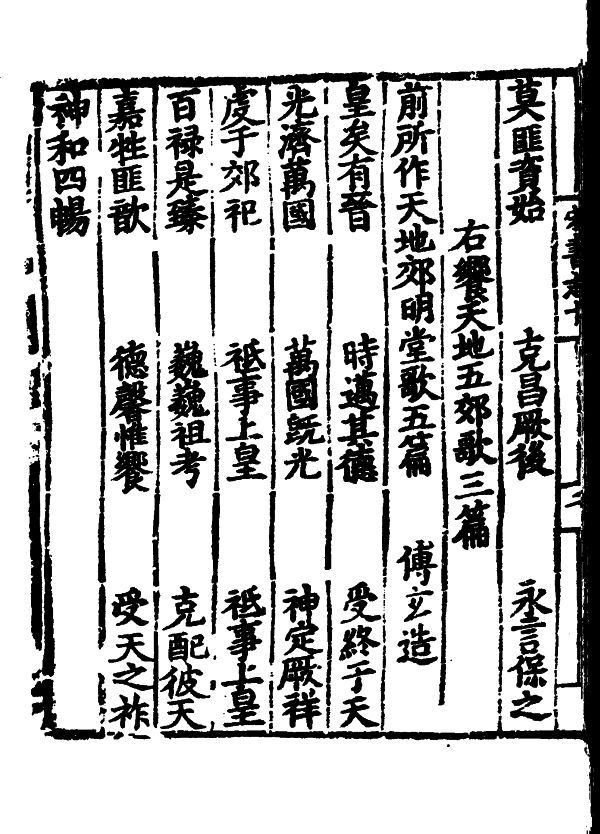 莫匪資始　克昌厥後　永言保之
右饗天地五郊歌三篇
前所作天地郊明堂歌五篇　傅玄造
皇矣有晉　時邁其德　受終于天
光濟萬國　萬國既光　神定厥祥
虔于郊祀　祗事上皇　祗事上皇
百禄是臻　巍巍祖考　克配彼天
嘉牲匪歆　德馨惟饗　受天之祚
神和四暢